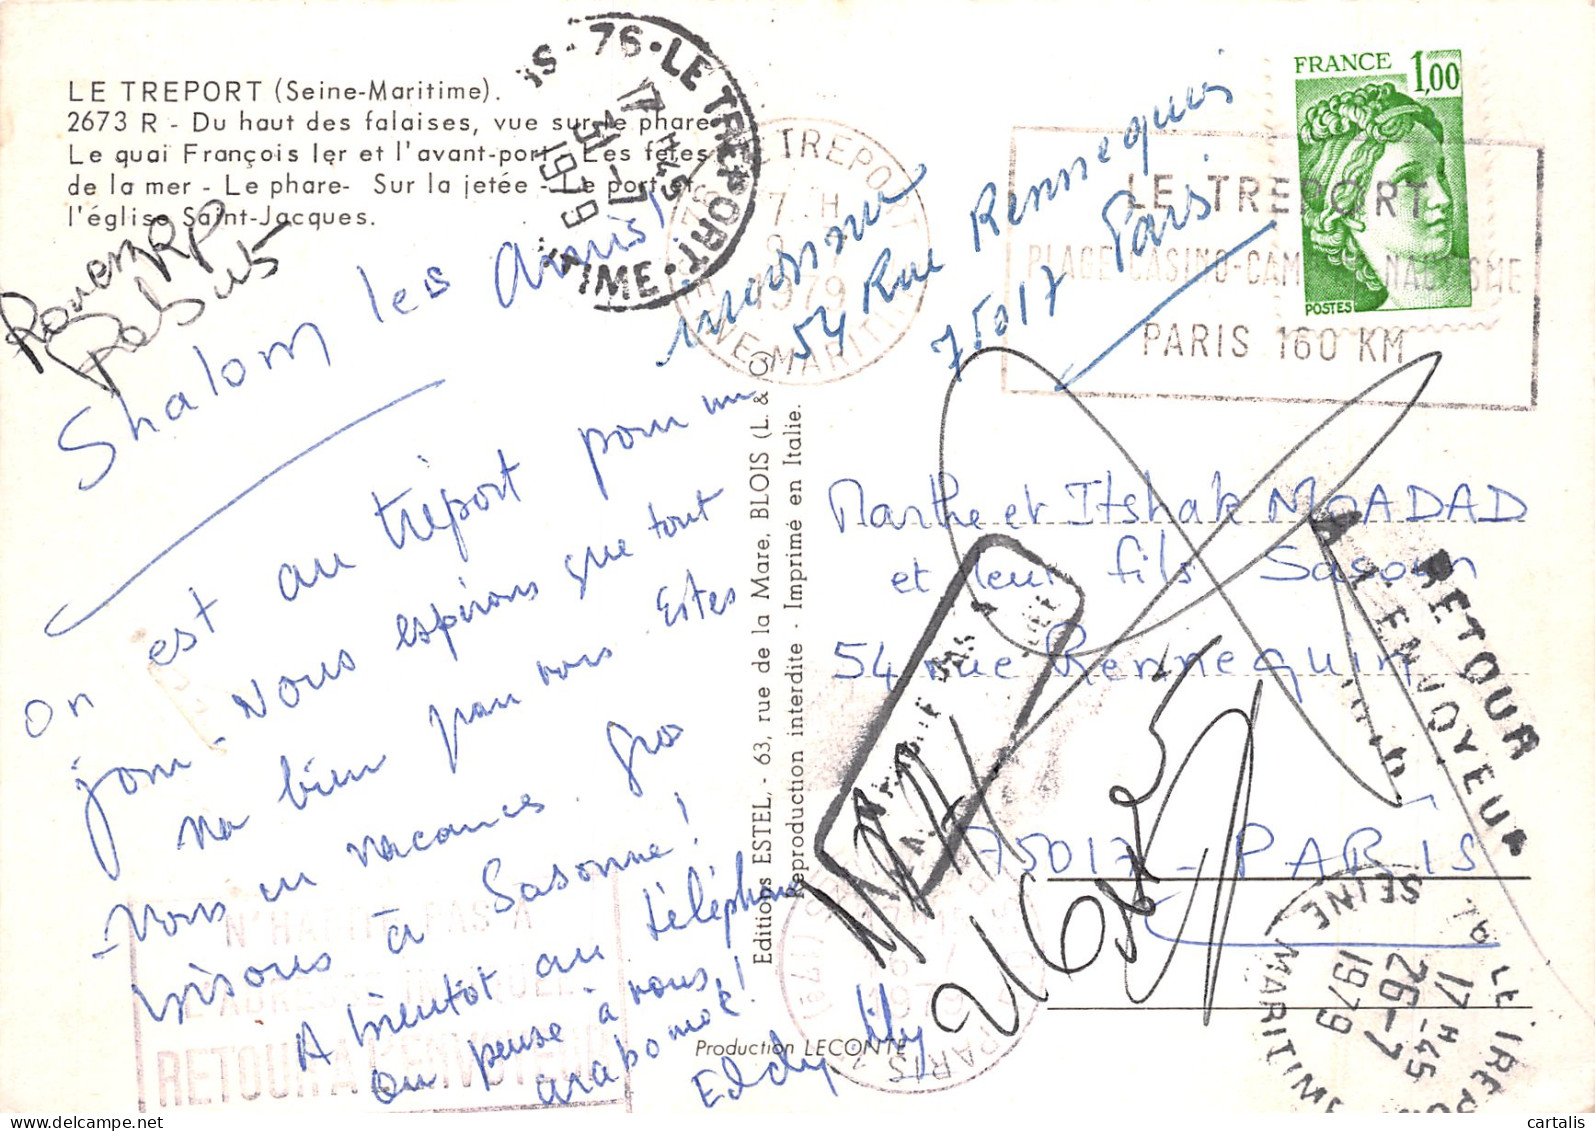 LE TREPORT (Seine-Maritime).
2673 R - Du haut des falaises, vue sur le phare
Le quai François Ier et l'avant-port - Les fêtes
de la mer - Le phare - Sur la jetée - Le port et
l'église Saint-Jacques.
Rouen RP
Shalom les amis!
on est au tréport pour un
jour. Nous espérons que tout
va bien pour vous. Estes
vous en vacances. Gros
bisous à Sasonne!
A bientôt au téléphone
on pense à vous!
Eddy
Editions ESTEL, - 63, rue de la Mare. BLOIS (L. & C)
Reproduction interdite - Imprimé en Italie.
Production LECONTE
76 - LE TREPORT
17 H45
31-7
1979
LE TREPORT
SEINE MARITIME
1979
inconnu
54 Rue Rennequin
75017 Paris
FRANCE 1,00
POSTES
LE TREPORT
PLAGE-CASINO-CAM NAUTISME
PARIS 160 KM
Marthe et Itshak MOADAD
et leur fils Sasoun
54 rue Rennequin
75017 - PARIS
RETOUR
A L'ENVOYEUR
N'HABITE PAS A
L'ADRESSE INDIQUEE
RETOUR A L'ENVOYEUR
PARIS
76 LE TREPORT
17 H 45
26-7
1979
SEINE MARITIME
cartalis
delcampe.net